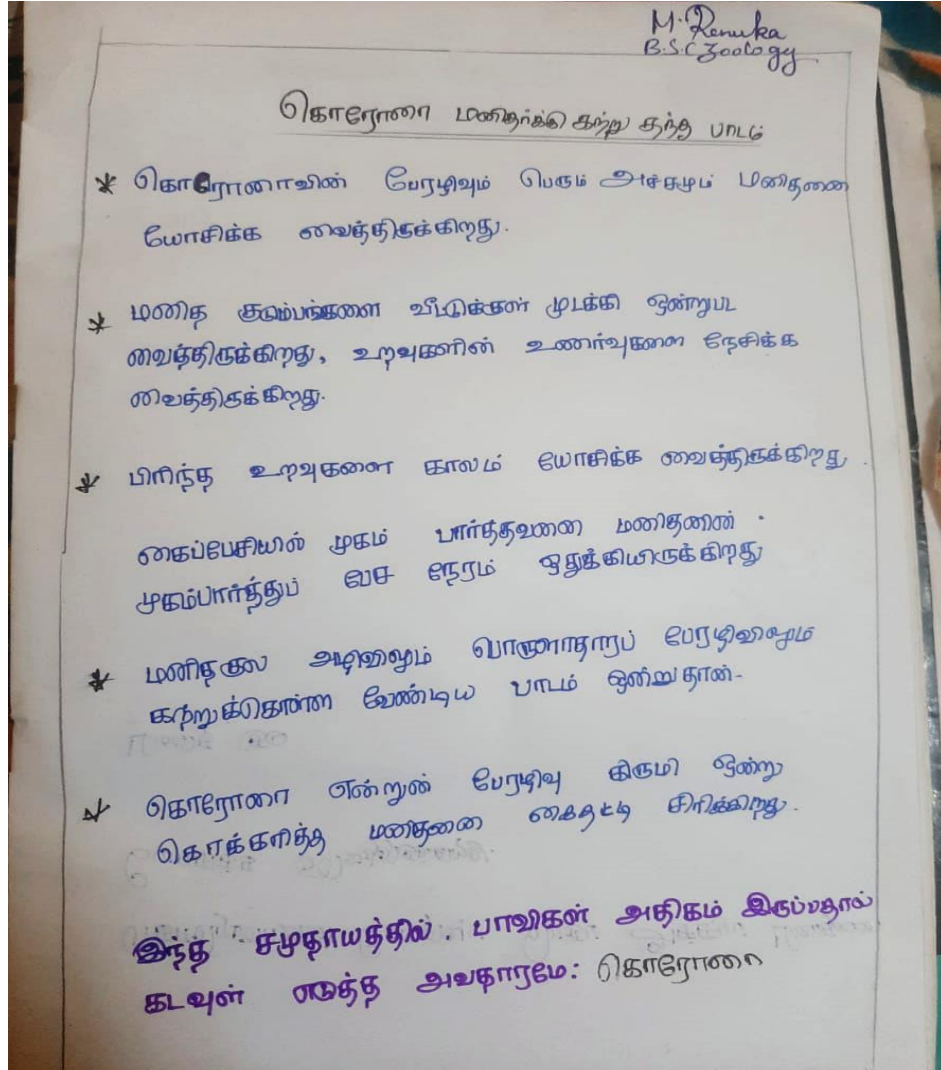 M. Renuka
B.S.C Zoology
கொரோனா மனிதர்க்கு கற்று தந்த பாடம்
* கொரோனாவின் பேரழிவும் பெரும் அச்சமும் மனிதனை
யோசிக்க வைத்திருக்கிறது.
* மனித குடும்பங்களை வீட்டுக்குள் முடக்கி ஒன்றுபட
வைத்திருக்கிறது, உறவுகளின் உணர்வுகளை நேசிக்க
வைத்திருக்கிறது.
* பிரிந்த உறவுகளை காலம் யோசிக்க வைத்திருக்கிறது.
கைப்பேசியில் முகம் பார்த்தவனை மனிதனின்
முகம்பார்த்துப் பேச நேரம் ஒதுக்கியிருக்கிறது
* மனிதகுல அழிவிலும் பொருளாதாரப் பேரழிவிலும்
கற்றுக்கொள்ள வேண்டிய பாடம் ஒன்றுதான்-
* கொரோனா என்றுன் பேரழிவு கிருமி ஒன்று
கொக்கரித்த மனிதனை கைதட்டி சிரிக்கிறது.
இந்த சமுதாயத்தில் பாவிகள் அதிகம் இருப்பதால்
கடவுள் எடுத்த அவதாரமே: கொரோனா